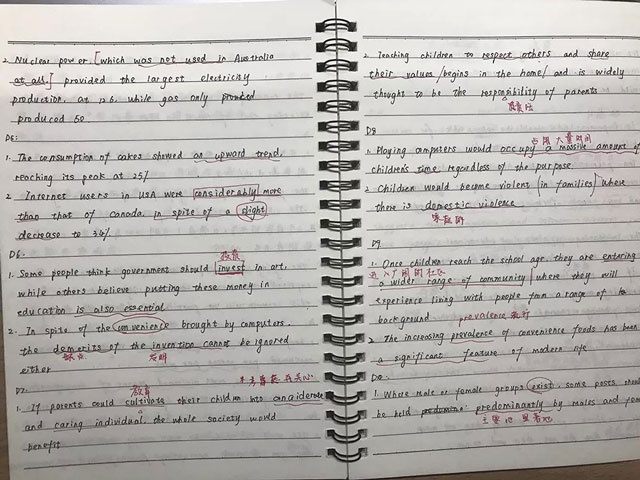 2. Nuclear power [which was not used in Australia
at all] provided the largest electricity
production, at 126. while gas only
produced 50
D5:
1. The consumption of cakes showed an upward trend,
reaching its peak at 25%
2. Internet users in USA were considerably more
than that of Canada in spite of a slight
decrease to 34%
D6.
投资
1. Some people think government should invest in art,
while others believe putting these money in
education is also essential
2. In spite of the convenience brought by computers.
the demerits of the invention cannot be ignored
缺点 发明
either
D7:
1. If parents could cultivate their children into considerate
and caring individual. the whole society would
benefit
2 Teaching children to respect others and share
their values/begins in the home/ and is widely
thought to be the responsibility of parents
D8
占用大量时间
1. Playing computers would occupy a massive amount of
children's time regardless of the purpose
2 Children would become violent [in families] where
there is domestic violence
家庭
D9
1. Once children reach the school age, they are entering
进入
a wider range of community, where they will
experience living with people from a range of
background prevalence 流行
2 The increasing prevalence of convenience foods has been
a significant feature of modern life
1. Where male or female groups exist, some posts should
be held predominantly by males and
主要地 显著地